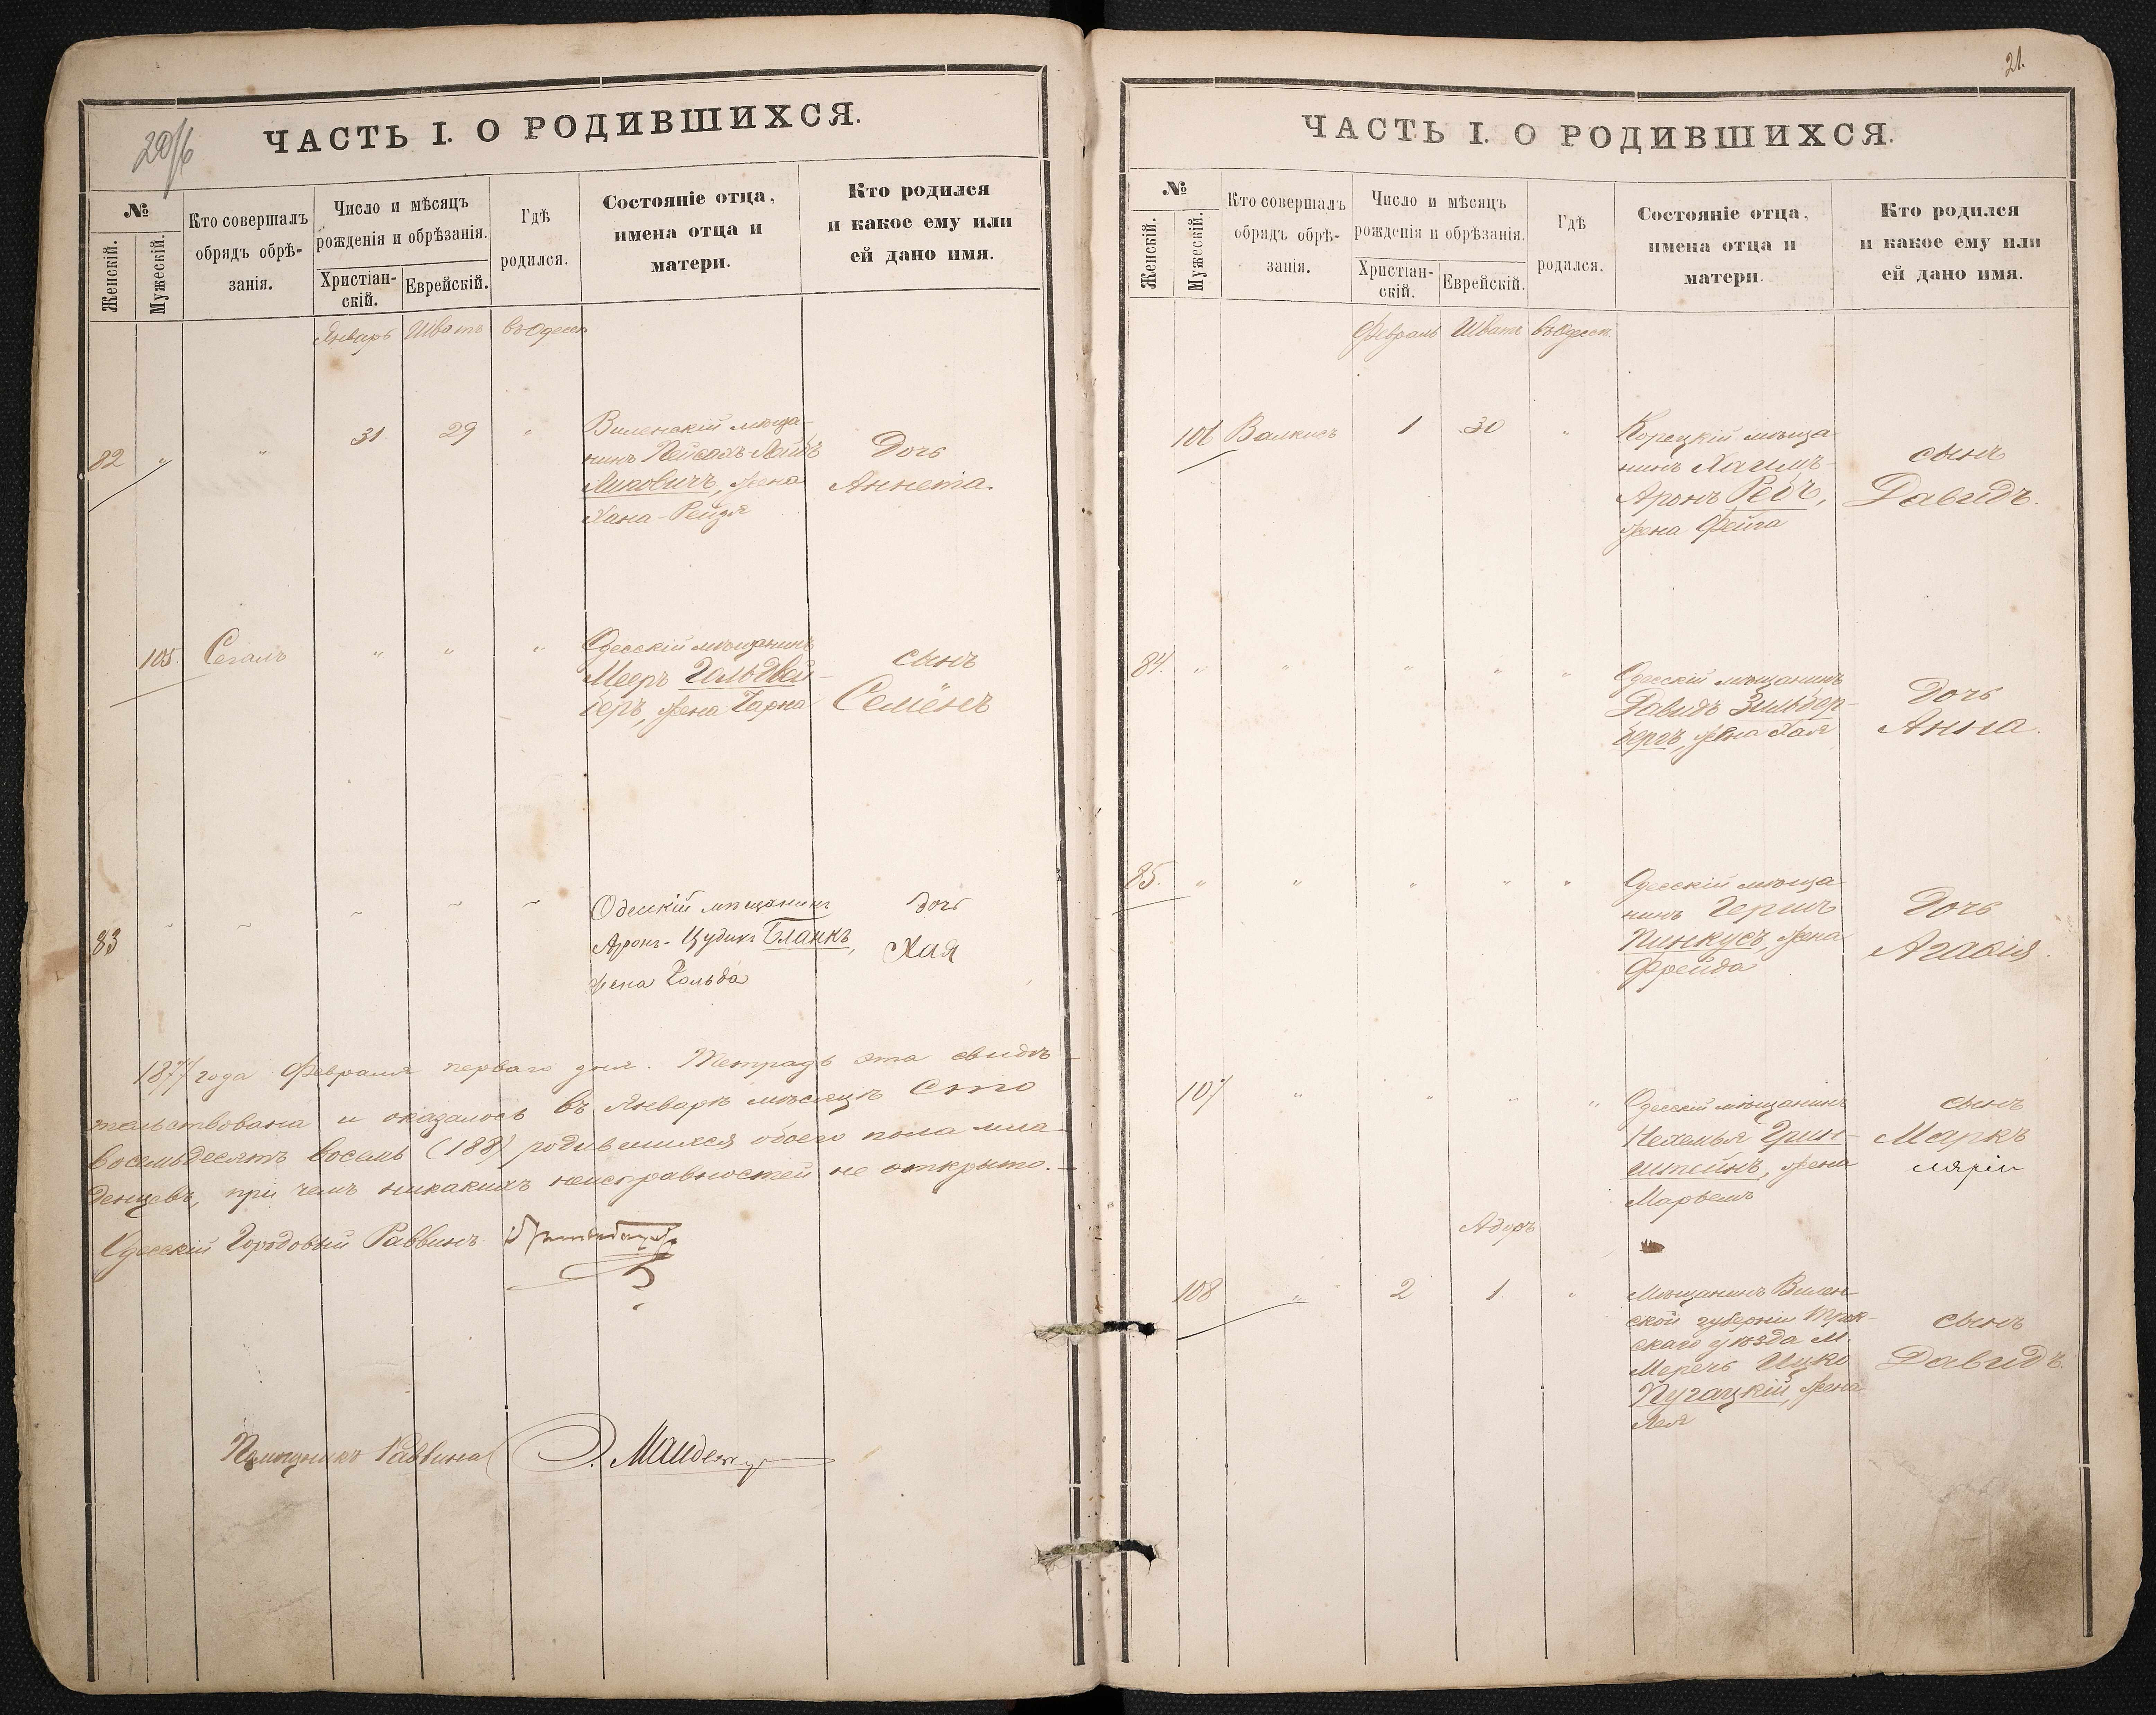 20/6
ЧАСТЬ I. О РОДИВШИХСЯ.
№
Женскій.
Мужескій.
Кто совершалъ
обрядъ обрѣ-
занія.
Число и мѣсяцъ
рожденія и обрѣзанія.
Христіан-
скій.
Еврейскій.
Гдѣ
родился.
Состояніе отца,
имена отца и
матери.
Кто родился
и какое ему или
ей дано имя.
Январь Шватъ въ Одессѣ
82 " " 31 29 "
Виленскій мѣща-
нинъ Пейсахъ Лейбъ
Липовичъ, жена
Хана-Рейзя
Дочь
Аннета.
105. Сегалъ " " "
Одесскій мѣщанинъ
Мееръ Гольдвей-
беръ, жена Чарна
сынъ
Семёнъ
83
Одесскій мѣщанинъ
Аронъ-Цудикъ Бланкъ,
жена Гольда
дочь
Хая
1877 года Февраля перваго дня. Тетрадь эта свидѣ-
тельствована и оказалось въ Январѣ мѣсяцѣ Сто
восемьдесятъ восемь (188) родившихся обоего пола мла-
денцевъ, при чемъ никакихъ неисправностей не открыто.-
Одесскій Городовый Раввинъ
Помощникъ Раввина
21.
ЧАСТЬ I. О РОДИВШИХСЯ.
№
Женскій.
Мужескій.
Кто совершалъ
обрядъ обрѣ-
занія.
Число и мѣсяцъ
рожденія и обрѣзанія.
Христіан-
скій.
Еврейскій.
Гдѣ
родился.
Состояніе отца,
имена отца и
матери.
Кто родился
и какое ему или
ей дано имя.
Февраль Шватъ въ Одессѣ
106 Валкисъ 1 30 "
Корецкій мѣща-
нинъ Хаимъ-
Аронъ Редъ,
жена Фейга
сынъ
Давидъ.
84. " " " " "
Одесскій мѣщанинъ
Давидъ Зильбер-
бергъ, жена Хая
Дочь
Анна.
85. " " " " "
Одесскій мѣща-
нинъ Гершъ
Пинкусъ, жена
Фрейда
Дочь
Агафія.
107 " " " "
Одесскій мѣщанинъ
Нехемья Грин-
штейнъ, жена
Марьемъ
сынъ
Маркъ
Адаръ
108 " 2 1 "
Мѣщанинъ Вилен-
ской губерніи Трок-
скаго уѣзда м.
Меречь Ицко
Пугацкій, жена
Лея
сынъ
Давидъ.